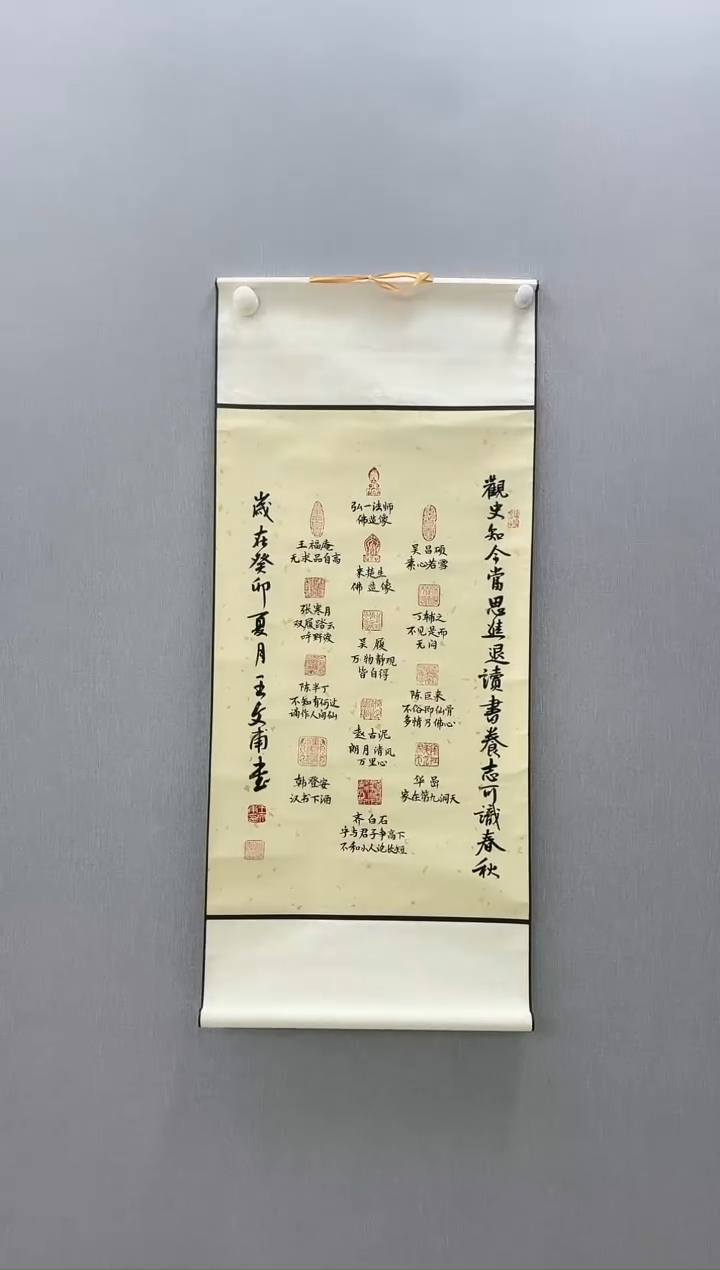 觀史知今當思進退讀書養志可識春秋
弘一法師
佛造像
吴昌硕
素心若雪
王福庵
无求品自高
来楚生
佛造像
丁辅之
不见是而
无闷
张寒月
双履踏云
吴履
万物静观
皆自得
陈巨来
不俗即仙骨
多情乃佛心
陈半丁
不知有何过
谪作人间仙
赵古泥
朗月清风
万里心
华嵒
家在第九洞天
韩登安
汉书下酒
齐白石
宁与君子争高下
不和小人论长短
歲在癸卯夏月王文甫書